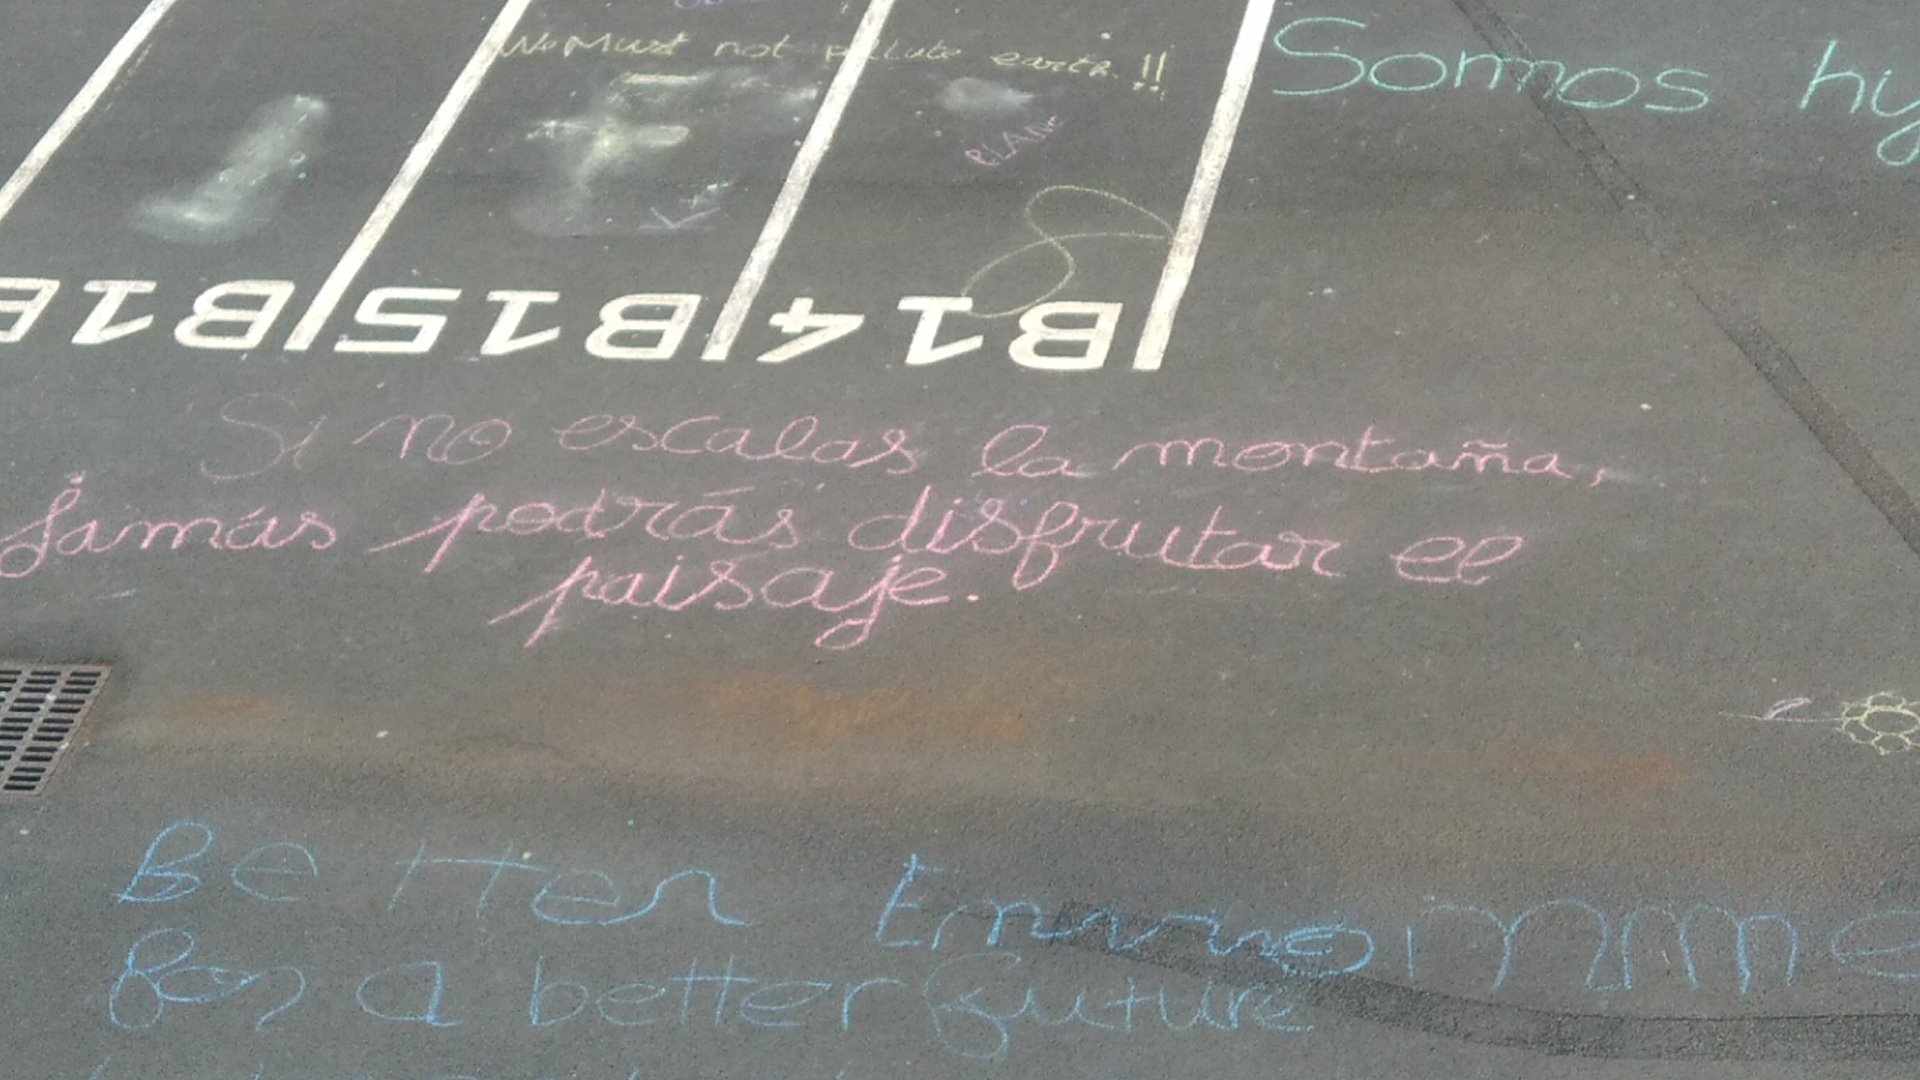 We Must not pollute earth !!
Somos
PLAN
B15
B14
Si no escalas la montaña,
jamás podrás disfrutar el
paisaje.
Better
for a better future